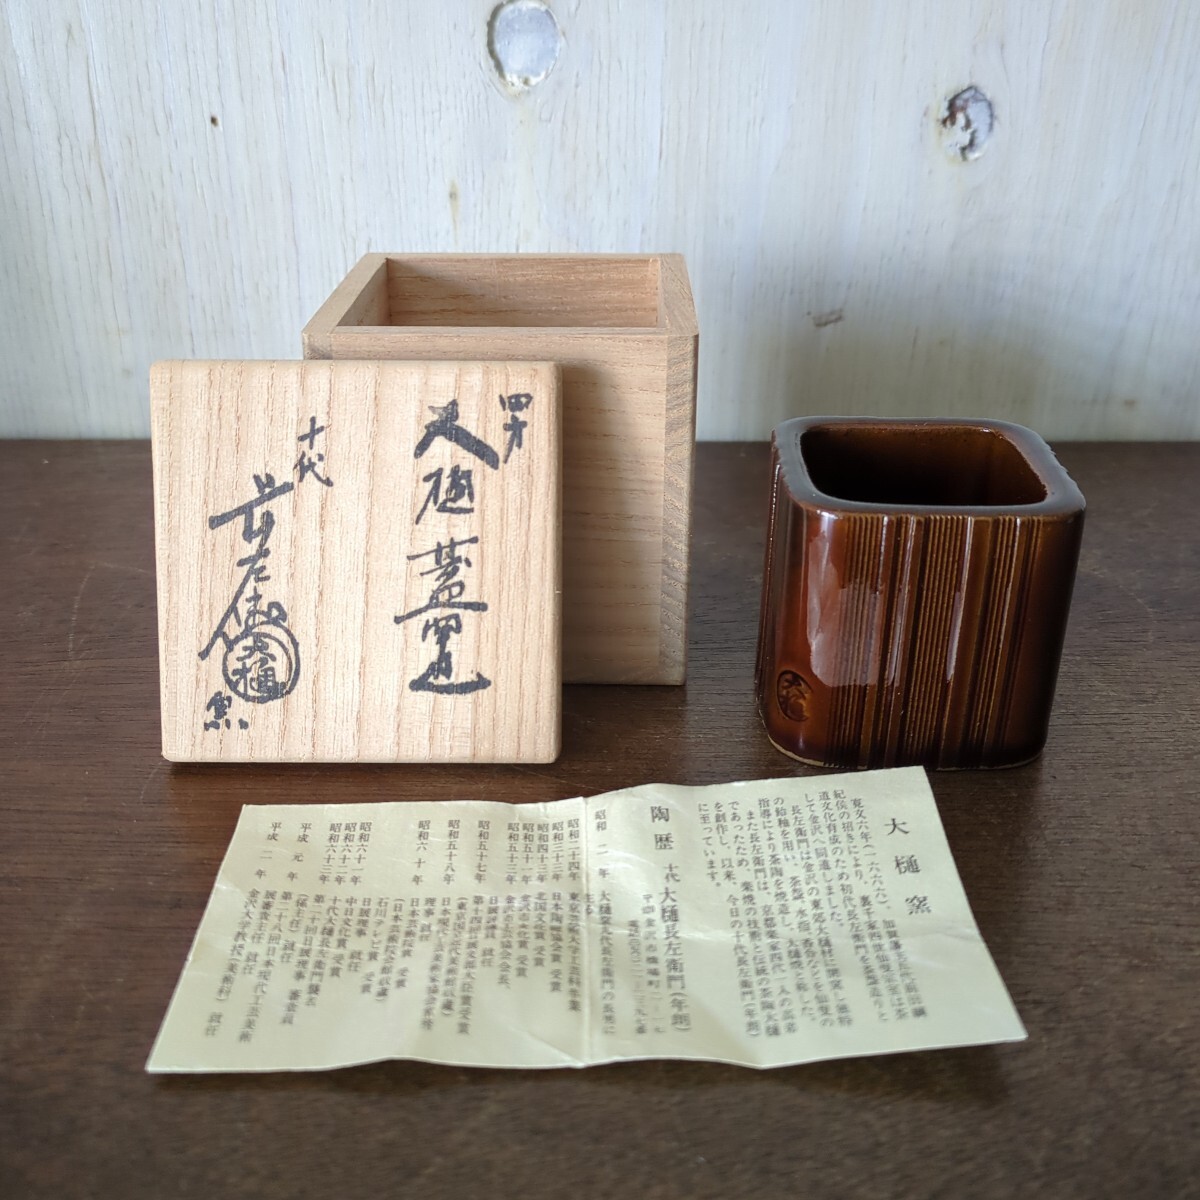 四方
大樋 蓋置
十代
長左衛門
大樋
窯
大樋
大樋窯
寛文六年(一六六六)、加賀藩主五代前田綱
紀侯の招きにより、裏千家四世仙叟宗室は茶
道文化育成のため初代長左衛門を茶碗造りと
して金沢へ同道しました。
長左衛門は金沢の東郊大樋村に開窯し独特
の飴釉を用い、茶盌、水指、香合などを仙叟の
指導により茶陶を焼造し、大樋焼と称した。
また長左衛門は、京都楽家四代一入の高弟
であったため、楽焼の技術と伝統の茶陶大樋
を創作し、以来、今日の十代長左衛門(年朗)
に至っています。
陶歴 十代大樋長左衛門(年朗)
金沢市橋場町二ー一七
昭和二年 大樋窯九代長左衛門の長男に
生る
昭和二十四年 東京芸術大学工芸科卒業
昭和三十三年 日本陶磁協会賞 受賞
昭和四十三年 北国文化賞 受賞
昭和五十一年 金沢市文化賞 受賞
昭和五十三年
昭和五十七年 日展評議員 就任
第十四回日展文部大臣賞受賞
(東京国立近代美術館収蔵)
昭和五十八年 日本現代工芸美術家協会常務
理事 就任
昭和六十年 日本芸術院賞 受賞
(日本芸術院会館収蔵)
石川テレビ賞 受賞
昭和六十一年 日展理事 就任
昭和六十二年 中日文化賞 受賞
昭和六十三年 十代大樋長左衛門襲名
第二十回日展理事 審査員
(係主任) 就任
平成元年 第二十八回日本現代工芸美術
展審査主任 就任
平成二年 金沢大学教授(美術科) 就任